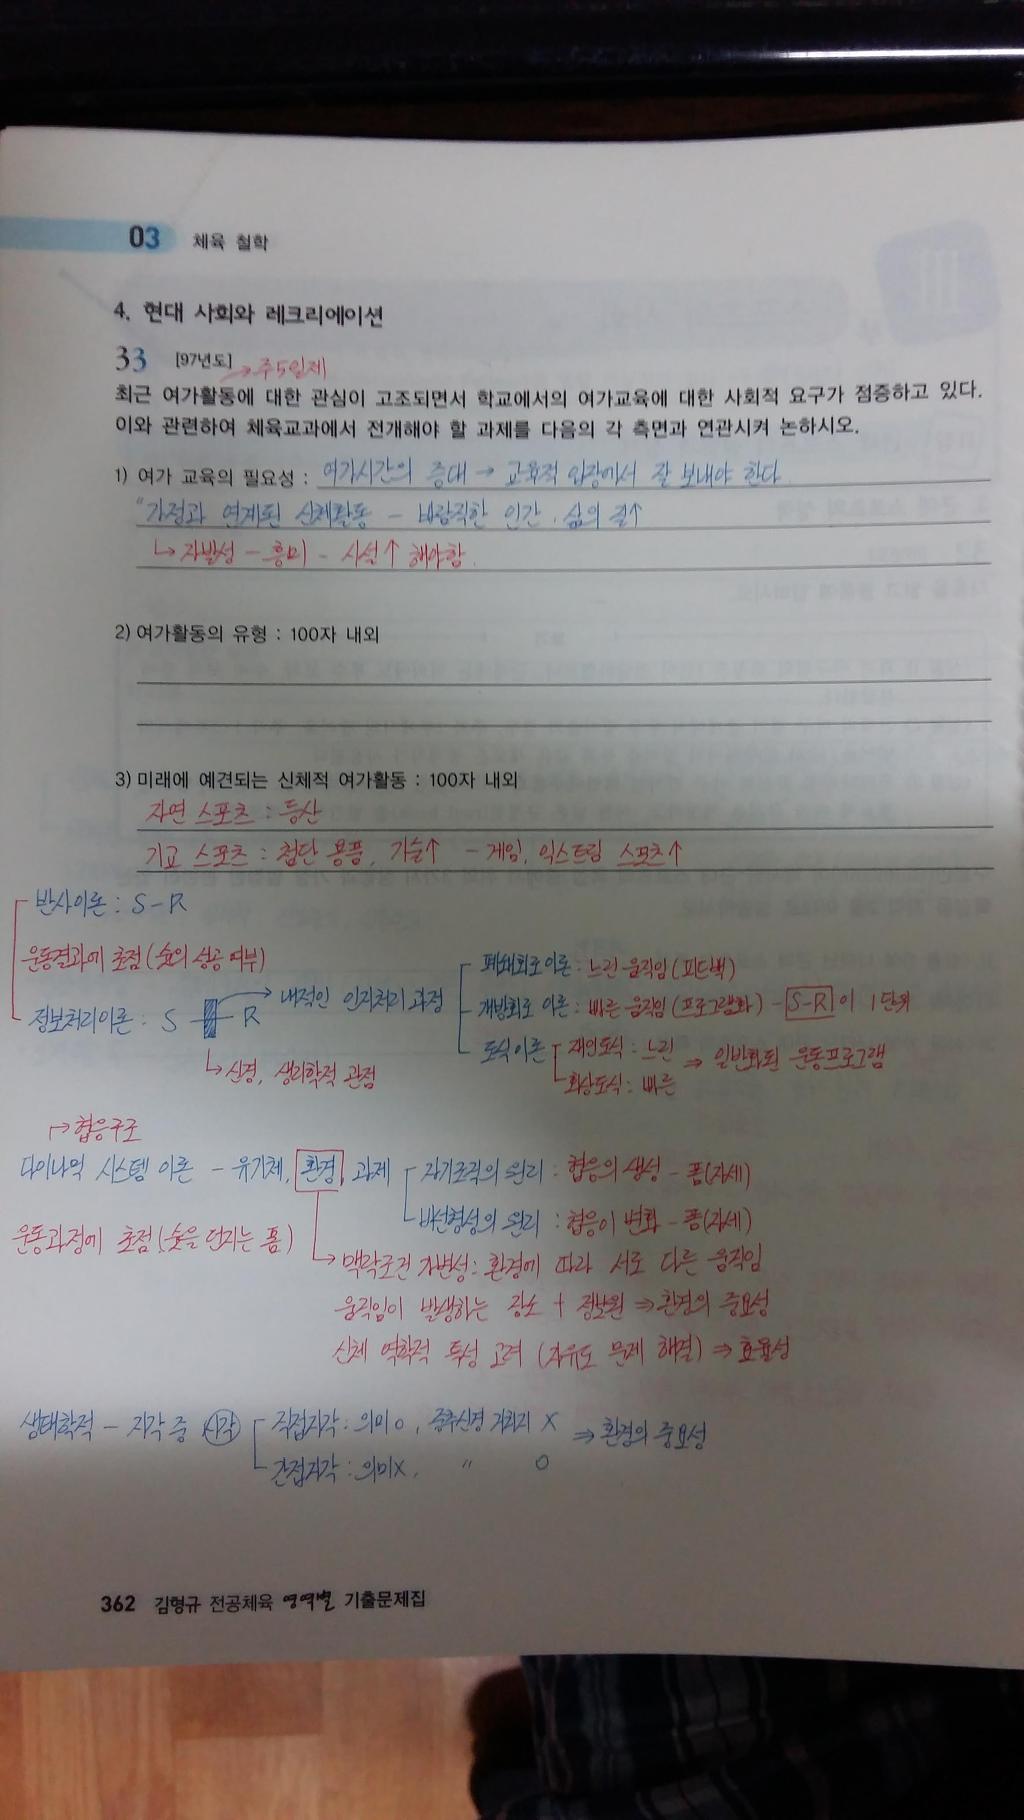 03 체육 철학
4. 현대 사회와 레크리에이션
33 [97년도] → 주5일제
최근 여가활동에 대한 관심이 고조되면서 학교에서의 여가교육에 대한 사회적 요구가 점증하고 있다.
이와 관련하여 체육교과에서 전개해야 할 과제를 다음의 각 측면과 연관시켜 논하시오.
1) 여가 교육의 필요성 : 여가시간의 증대 → 교육적 입장에서 잘 보내야 한다.
"가정과 연계된 신체활동 - 바람직한 인간, 삶의 질↑
↳ 자발성 - 흥미 - 시설↑ 해야함.
2) 여가활동의 유형 : 100자 내외
3) 미래에 예견되는 신체적 여가활동 : 100자 내외
자연 스포츠 : 등산
기교 스포츠 : 첨단 용품, 기술↑ - 게임, 익스트림 스포츠↑
반사이론 : S-R
운동결과에 초점 (슛의 성공 여부)
정보처리이론 : S R → 내적인 인지처리 과정
↳ 신경, 생리학적 관점
폐쇄회로 이론 : 느린 움직임 (피드백)
개방회로 이론 : 빠른 움직임 (프로그램화) - S-R이 1단위
도식이론 재인도식 : 느린 ⇒ 일반화된 운동프로그램
회상도식 : 빠른
→ 협응구조
다이나믹 시스템 이론 - 유기체, 환경, 과제 자기조직의 원리 : 협응의 생성 - 폼(자세)
비선형성의 원리 : 협응이 변화 - 폼(자세)
운동과정에 초점 (슛을 던지는 폼)
↳ 맥락조건 가변성 : 환경에 따라 서로 다른 움직임
움직임이 발생하는 장소 + 정보원 ⇒ 환경의 중요성
신체 역학적 특성 고려 (자유도 문제 해결) ⇒ 효율성
생태학적 - 지각 중 시각 직접지각 : 의미 O, 중추신경 거치지 X ⇒ 환경의 중요성
간접지각 : 의미 X, 〃 O
362 김형규 전공체육 영역별 기출문제집